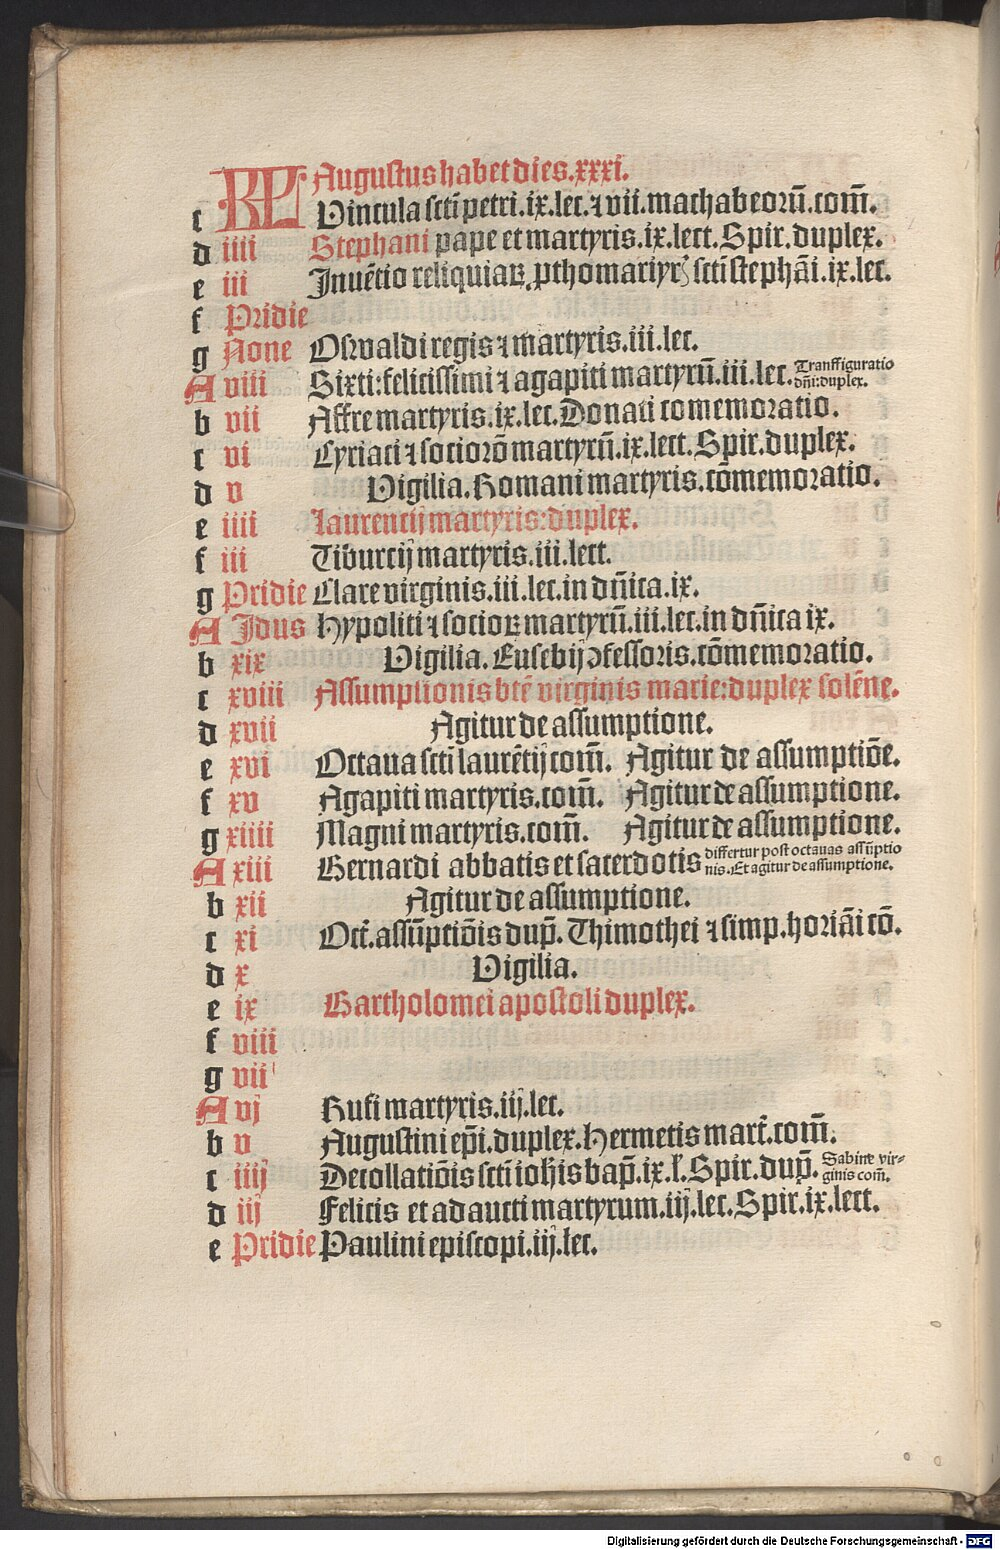 KL Augustus habet dies.xxxi.
c Vincula scti petri.ix.lec.⁊ vii.machabeorū.com̄.
d iiii Stephani pape et martyris.ix.lect.Spir.duplex.
e iii Inuētio reliquiaꝝ ꝓthomartyrꝭ scti stephāi.ix.lec.
f Pridie
g None Oswaldi regis ⁊ martyris.iii.lec.
A viii Sixti:felicissimi ⁊ agapiti martyrū.iii.lec. Transfiguratio
dn̄i:duplex.
b vii Affre martyris.ix.lec.Donati comemoratio.
c vi Cyriaci ⁊ sociorō martyrū.ix.lect.Spir.duplex.
d v Vigilia.Romani martyris.cōmemoratio.
e iiii Laurencij martyris:duplex.
f iii Tiburcij martyris.iii.lect.
g Pridie Clare virginis.iii.lec.in dn̄ica.ix.
A Idus Hypoliti ⁊ socioꝝ martyrū.iii.lec.in dn̄ica ix.
b xix Vigilia.Eusebij ꝯfessoris.cōmemoratio.
c xviii Assumptionis btē virginis marie:duplex solēne.
d xvii Agitur de assumptione.
e xvi Octaua scti laurētij com̄. Agitur de assumptiōe.
f xv Agapiti martyris.com̄. Agitur de assumptione.
g xiiii Magni martyris.com̄. Agitur de assumptione.
A xiii Bernardi abbatis et sacerdotis differtur post octauas assūptio
nis.Et agitur de assumptione.
b xii Agitur de assumptione.
c xi Oct̄.assūptiōis dup̄.Thimothei ⁊ simp.horiāi cō.
d x Vigilia.
e ix Bartholomei apostoli duplex.
f viii
g vii
A vj Rufi martyris.iij.lec.
b v Augustini ep̄i.duplex.Hermetis mart̄.com̄.
c iiij Decollatiōis scti ioh̄is bap̄.ix.l̄.Spir.dup̄. Sabine vir-
ginis com̄.
d iij Felicis et adaucti martyrum.iij.lec.Spir.ix.lect.
e Pridie Paulini episcopi.iij.lec.
Digitalisierung gefördert durch die Deutsche Forschungsgemeinschaft - DFG